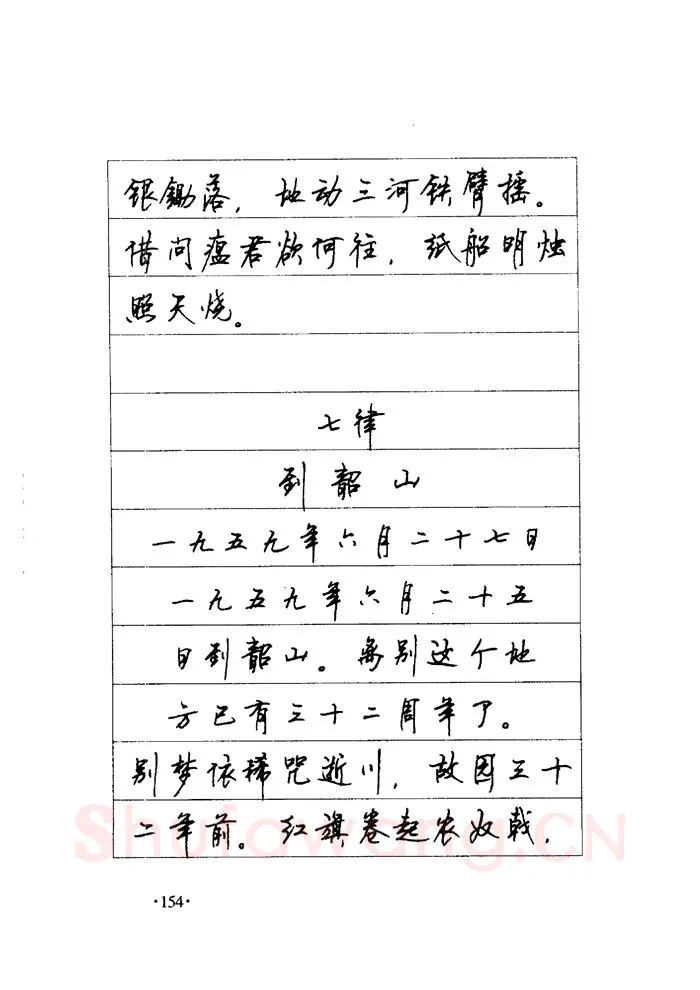 银锄落，地动三河铁臂摇。
借问瘟君欲何往，纸船明烛
照天烧。
七律
到韶山
一九五九年六月二十七日
一九五九年六月二十五
日到韶山。离别这个地
方已有三十二周年了。
别梦依稀咒逝川，故园三十
二年前。红旗卷起农奴戟，
Shufawang.CN
·154·